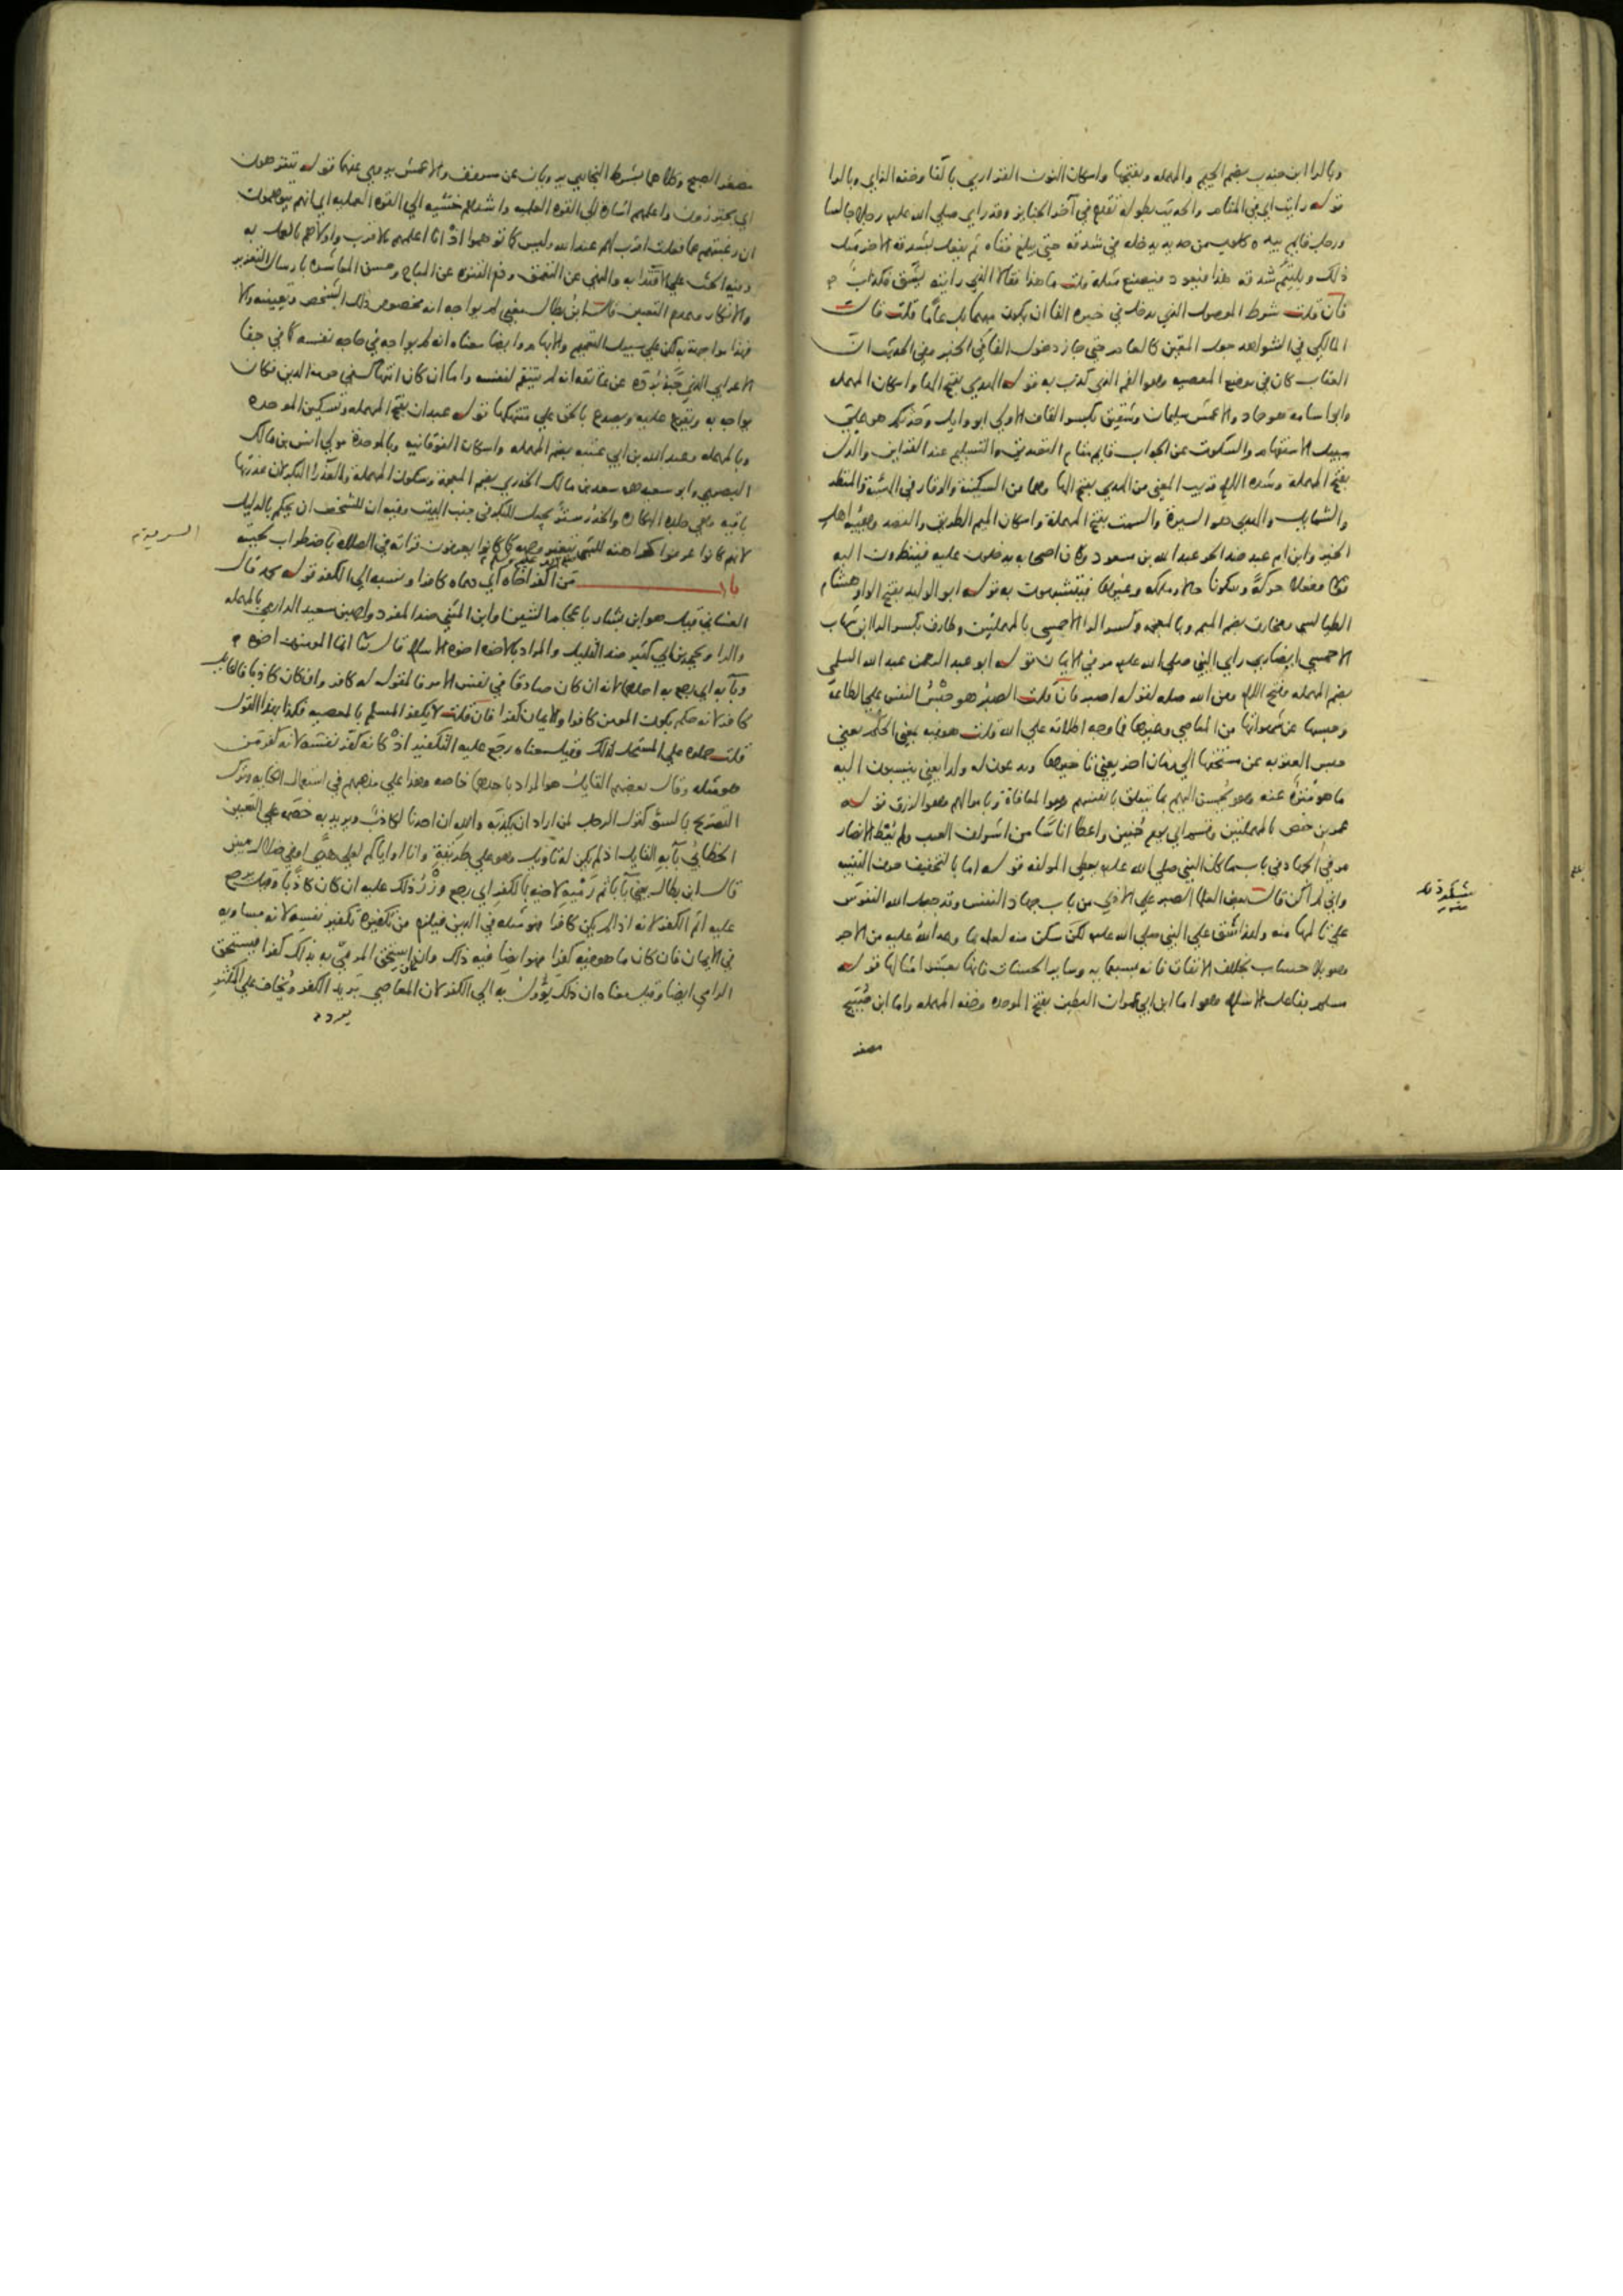 وبالراء ابن جندب بضم الجيم والمهمله وفتحها واسكان النون الفزاري بالفا وخفه الزاي وبالرا
قوله رايت اي في المنام والحديث بطوله تقدم في آخر الجنايز وقد راي صلي الله عليه رجلا جالسا
ورجل قايم بيده كلوب من حديد يدخله في شدقه حتي يبلغ قفاه ثم يفعل بشدقه الاخر مثل
ذلك ويلتئم شدقه هذا فيعود فيصنع مثله قلت ما هذا فقالا الذي رايته يشق فكذاب
فان قلت شرط الموصول الذي يدخل في خبره الفا ان يكون مبهما بل عاما قلت قال
المالكي في الشواهد جعل المعين كالعام حتي جاز دخول الفا في الخبر وفي الحديث ان
العقاب كان في موضع المعصيه وهو الفم الذي كذب به قوله الهدي بفتح الها واسكان المهمله
وابو اسامه هو حماد والاعمش سليمان وشقيق بكسر القاف الاولي ابو وايل وحدثكم هو علي
سبيل الاستفهام والسكوت عن الجواب قايم مقام التصديق والتسليم عند القراين والدل
بفتح المهملة وشده اللام قريب المعني من الهدي بفتح الها وهما من السكينة والوقار في الهيئة والمنظر
والشمايل والهدي هو السيرة والسمت بفتح المهملة واسكان الميم الطريق والقصد وهيئه اهل
الخير وابن ام عبد ضد الحر عبد الله بن مسعود وكان اصحابه يدخلون عليه فينظرون اليه
قولا وفعلا حركة وسكونا حالا وملكه وغيرها فيتشبهون به قوله ابو الوليد بفتح الواو هشام
الطيالسي ومخارق بضم الميم وبالمعجمه وكسر الرا الاحمسي بالمهملتين وطارق بكسر الرا ابن شهاب
الاحمسي ايضا رأي النبي صلي الله عليه مر في الايمان قوله ابو عبد الرحمن عبد الله السلمي
بضم المهمله وفتح اللام وعن الله صله لقوله اصبر فان قلت الصبر هو حبس النفس علي الطاعة
وحبسها عن شهواتها من المعاصي وغيرها فما وجه اطلاقه علي الله قلت هو فيه بمعني الحلم يعني
حبس العقوبه عن مستحقها الي زمان اخر يعني تاخيرها ويدعون له ولدا يعني ينسبون اليه
ما هو منزه عنه وهو يحسن اليهم بما يتعلق بانفسهم وهو المعافاة وباموالهم وهو الرزق قوله
عمر بن حفص بالمهملتين وقسم اي يوم حنين واعطا اناسا من اشراف العرب ولم يعط الانصار
مر في الجهاد في باب ما كان النبي صلي الله عليه يعطي المولفه قوله اما بالتخفيف حرف التنبيه
واني لم اكن قال بعض العلما الصبر علي الاذي من باب جهاد النفس وقد جعل الله النفوس
علي تالمها منه ولهذا شق علي النبي صلي الله عليه لكن سكن منه لعلمه بما وعد الله عليه من الاجر
وهو بلا حساب بخلاف الانفاق فانه بسبعمايه وساير الحسنات فانها بعشر امثالها قوله
مسلم بفاعل الاسلام وهو اما ابن ابي عمران البطين بفتح الموحده وخفه المهمله واما ابن صبيح
مصغر
مصغر الصبح وكلاهما بشرط البخاري يرويان عن مسروق والاعمش يروي عنهما قوله يتنزهون
اي يحترزون واعلمهم اشارة الي القوه العلميه واشدهم خشيه الي القوه العمليه اي انهم يتوهمون
ان رغبتهم عما فعلت اقرب لهم عند الله وليس كما توهموا اذ انا اعلمهم بالاقرب واولاهم بالعمل به
وفيه الحث علي الاقتدا به والنهي عن التعمق وذم التنزه عن المباح وحسن المعاشره بارسال التعزير
والانكار وعدم التعيين قال ابن بطال يعني لم يواجه انه بخصوص ذلك الشخص وتعيينه والا
فهذا مواجهة ولكن علي سبيل التعميم والابهام وايضا معناه انه لم يواجه في حاجه نفسه كما في جفا
الاعرابي الذي جبذ برده عن عاتقه انه لم ينتقم لنفسه واما ان كان انتهاك شي حرمه الدين فكان
يواجه به ويقرع عليه ويصدع بالحق علي منتهكها قوله عبدان بفتح المهمله وتسكين الموحده
وبالمهمله وعبد الله بن ابي عتبه بضم المهمله واسكان الفوقانيه وبالموحدة مولي انس بن مالك
البصري وابو سعيد هو سعد بن مالك الخدري بضم المعجمة وسكون المهملة والعذرا البكر لان عذرتها
باقيه وهي جلده البكاره والخدر ستر يجعل للبكر في جنب البيت وفيه ان للشخص ان يحكم بالدليل
لانهم كانوا عرفوا كراهته للشي بتغير وجهه كما كانوا يعرفون قراته في الصلاه باضطراب لحيته
صلي الله عليه وسلم
باب من اكفر اخاه اي دعاه كافرا ونسبه الي الكفر قوله محمد قال
الغساني قيل هو ابن بشار باعجام الشين او ابن المثني ضد المفرد واحمد بن سعيد الدارمي بالمهمله
والرا ويحيي بن ابي كثير ضد القليل والمراد بالاخوه اخوه الاسلام قال تعالي انما المومنون اخوه
وباء به اي رجع به احدهما لانه ان كان صادقا في نفس الامر فالمقول له كافر وان كان كاذبا فالقايل
كافر لانه حكم بكون المومن كافرا والايمان كفرا فان قلت لا يكفر المسلم بالمعصيه فكذا بهذا القول
قلت حملوه علي المستحل لذلك وقيل معناه رجع عليه التكفير اذ كانه كفر نفسه لانه كفر من
هو مثله وقال بعضهم القايل هو المراد باحدهما خاصه وهذا علي مذهبهم في استعمال الكنايه وترك
التصريح بالسوء كقول الرجل لمن اراد ان يكذبه والله ان احدنا لكاذب ويريد به خصمه علي التعيين
الخطابي باء به القايل اذا لم يكن له تاويل وهو علي طريقة وانا او اياكم لعلي هدي او في ضلال مبين
قال ابن بطال يعني باء باثم رميه لاخيه بالكفر اي رجع وزر ذلك عليه ان كان كاذبا وقيل يرجع
عليه اثم الكفر لانه اذا لم يكن كافرا فهو مثله في الدين فيلزم من تكفيره تكفير نفسه لانه مساويه
في الايمان فان كان ما هو فيه كفرا فهو ايضا فيه ذلك وان استحق المرمي به بذلك كفرا فيستحق
الرامي ايضا وقيل معناه ان ذلك يؤول به الي الكفر لان المعاصي بريد الكفر ويخاف علي المكثر